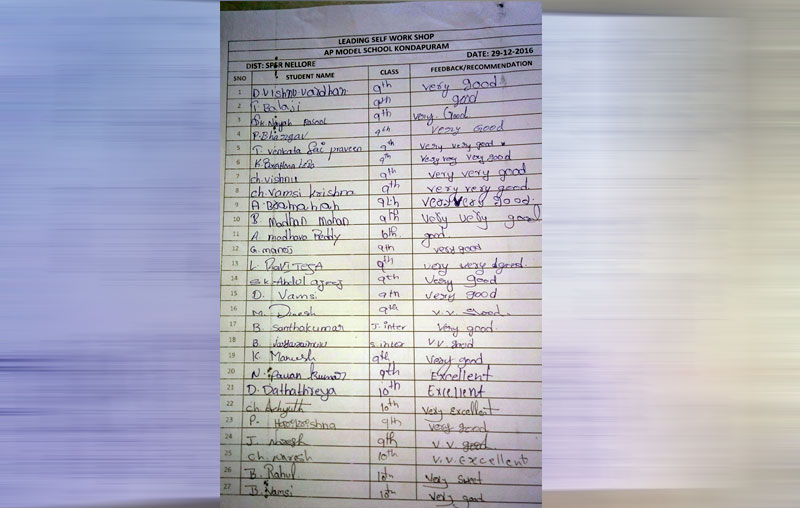 LEADING SELF WORK SHOP
AP MODEL SCHOOL KONDAPURAM
DIST: SPSR NELLORE DATE: 29-12-2016
SNO STUDENT NAME CLASS FEEDBACK/RECOMMENDATION
1 D.Vishnu vardhan 9th very good
2 T. Balaji 9th good
3 SK. 9th very Good
4 P. Bhargav 9th very Good
5 T. venkata Sai praveen 9th very very good
6 K. 9th very very very good
7 ch. vishnu 9th very very good
8 ch. vamsi krishna 9th very very good.
9 A. 9th very very good.
10 B. Madhan Mohan 9th very very good
11 A. madhava Reddy 10th good
12 G. manoj 9th very good
13 L. RAVITEJA 9th very very good.
14 S.K. Abdul 9th very Good
15 D. Vamsi 9th very good
16 M. Dinesh 9th v.v. Good.
17 B. santhakumar J. inter very good.
18 B. S. inter v.v. good
19 K. Manish 9th very good
20 N. Pavan kumar 9th Excellent
21 D. Dathathreya 10th Excellent
22 ch. Achyuth 10th very Excellent
23 P. 9th very good
24 J. 9th v.v. good
25 ch. naresh 10th v.v. Excellent
26 B. Rahul 10th very sweet
27 B. Vamsi 10th very good